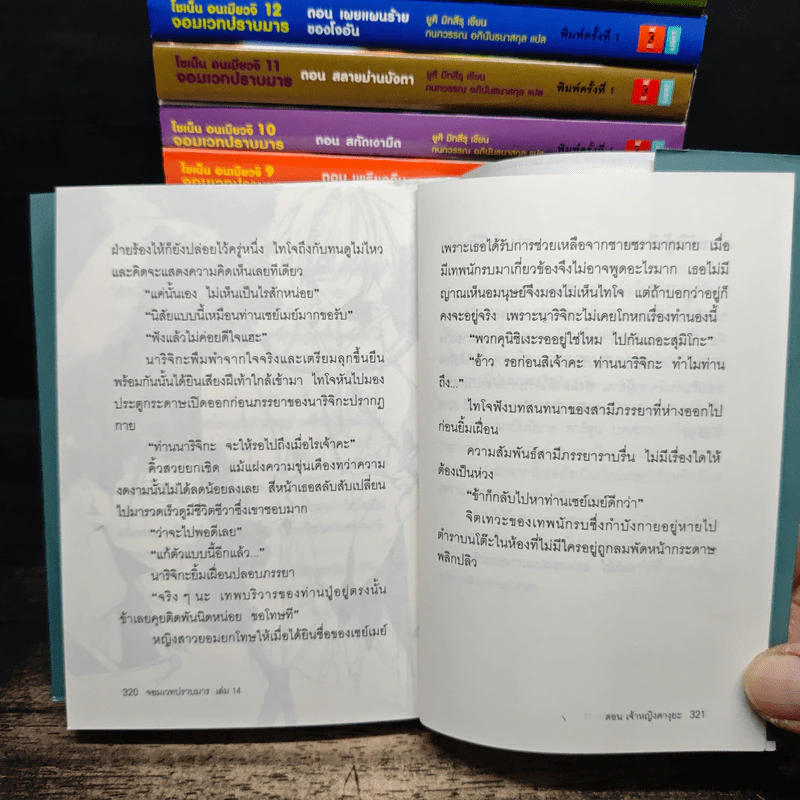 โชเน็น อนเมียวจิ 12
จอมเวทปราบมาร
ตอน เผยแผนร้าย
ของโงอัน
ยูคิ มิทสึรุ เขียน
กนกวรรณ อภินันธนาสกุล แปล
พิมพ์ครั้งที่ 1
โชเน็น อนเมียวจิ 11
จอมเวทปราบมาร
ตอน สลายม่านบังตา
ยูคิ มิทสึรุ เขียน
กนกวรรณ อภินันธนาสกุล แปล
พิมพ์ครั้งที่ 1
โชเน็น อนเมียวจิ 10
จอมเวทปราบมาร
ตอน สกัดเงามืด
ยูคิ มิทสึรุ เขียน
กนกวรรณ อภินันธนาสกุล แปล
พิมพ์ครั้งที่ 1
โชเน็น อนเมียวจิ 9
จอมเวทปราบมาร
ตอน
ฝ่ายร้องไห้ก็ยังปล่อยไว้ครู่หนึ่ง ไทโจถึงกับทนดูไม่ไหว
และคิดจะแสดงความคิดเห็นเลยทีเดียว
“แค่นั้นเอง ไม่เห็นเป็นไรสักหน่อย”
“นิสัยแบบนี้เหมือนท่านเซย์เมย์มากขอรับ”
“ฟังแล้วไม่ค่อยดีใจแฮะ”
นาริจิกะพึมพำจากใจจริงและเตรียมลุกขึ้นยืน
พร้อมกันนั้นได้ยินเสียงฝีเท้าใกล้เข้ามา ไทโจหันไปมอง
ประตูกระดาษเปิดออกก่อนภรรยาของนาริจิกะปรากฏ
กาย
“ท่านนาริจิกะ จะให้รอไปถึงเมื่อไรเจ้าคะ”
คิ้วสวยยกเชิด แม้แฝงความขุ่นเคืองทว่าความ
งดงามนั้นไม่ได้ลดน้อยลงเลย สีหน้าเธอสลับสับเปลี่ยน
ไปมารวดเร็วดูมีชีวิตชีวาซึ่งเขาชอบมาก
“ว่าจะไปพอดีเลย”
“แก้ตัวแบบนี้อีกแล้ว...”
นาริจิกะยิ้มเฝื่อนปลอบภรรยา
“จริง ๆ นะ เทพบริวารของท่านปู่อยู่ตรงนั้น
ข้าเลยคุยติดพันนิดหน่อย ขอโทษที”
หญิงสาวยอมยกโทษให้เมื่อได้ยินชื่อของเซย์เมย์
320 จอมเวทปราบมาร เล่ม 14
เพราะเธอได้รับการช่วยเหลือจากชายชรามากมาย เมื่อ
มีเทพนักรบมาเกี่ยวข้องจึงไม่อาจพูดอะไรมาก เธอไม่มี
ญาณเห็นอมนุษย์จึงมองไม่เห็นไทโจ แต่ถ้าบอกว่าอยู่ก็
คงจะอยู่จริง เพราะนาริจิกะไม่เคยโกหกเรื่องทำนองนี้
“พวกคุนิชิเงะรออยู่ใช่ไหม ไปกันเถอะสุมิโกะ”
“อ้าว รอก่อนสิเจ้าคะ ท่านนาริจิกะ ทำไมท่าน
ถึง...”
ไทโจฟังบทสนทนาของสามีภรรยาที่ห่างออกไป
ก่อนยิ้มเฝื่อน
ความสัมพันธ์สามีภรรยาราบรื่น ไม่มีเรื่องใดให้
ต้องเป็นห่วง
“ข้าก็กลับไปหาท่านเซย์เมย์ดีกว่า”
จิตเทวะของเทพนักรบซึ่งกำบังกายอยู่หายไป
ตำราบนโต๊ะในห้องที่ไม่มีใครอยู่ถูกลมพัดหน้ากระดาษ
พลิกปลิว
ตอน เจ้าหญิงคางุยะ 321